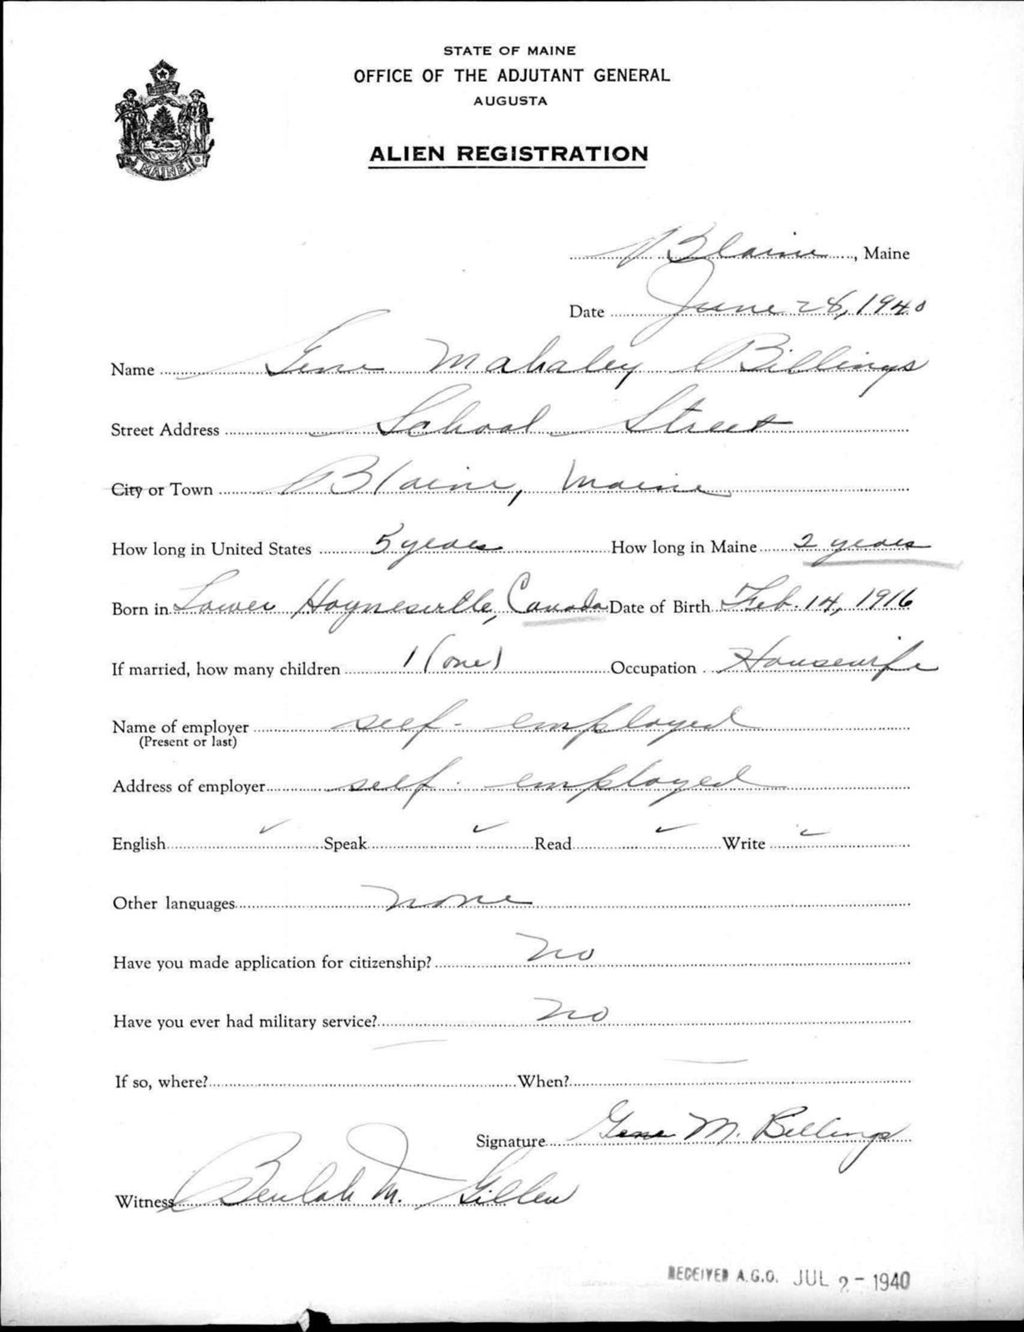 STATE OF MAINE
OFFICE OF THE ADJUTANT GENERAL
AUGUSTA
ALIEN REGISTRATION
MAINE
Blaine, Maine
Date June 28, 1940
Name Gene Mahaley Billings
Street Address School Street
City or Town Blaine, Maine
How long in United States 5 years How long in Maine 2 years
Born in Lower Haynesville, Canada Date of Birth Feb. 14, 1916
If married, how many children 1 (one) Occupation Housewife
Name of employer self-employed
(Present or last)
Address of employer self-employed
English ✓ Speak ✓ Read ✓ Write ✓
Other languages none
Have you made application for citizenship? no
Have you ever had military service? no
If so, where? — When? —
Signature Gene M. Billings
Witness Beulah M. Gillen
RECEIVED A.G.O. JUL 2 - 1940